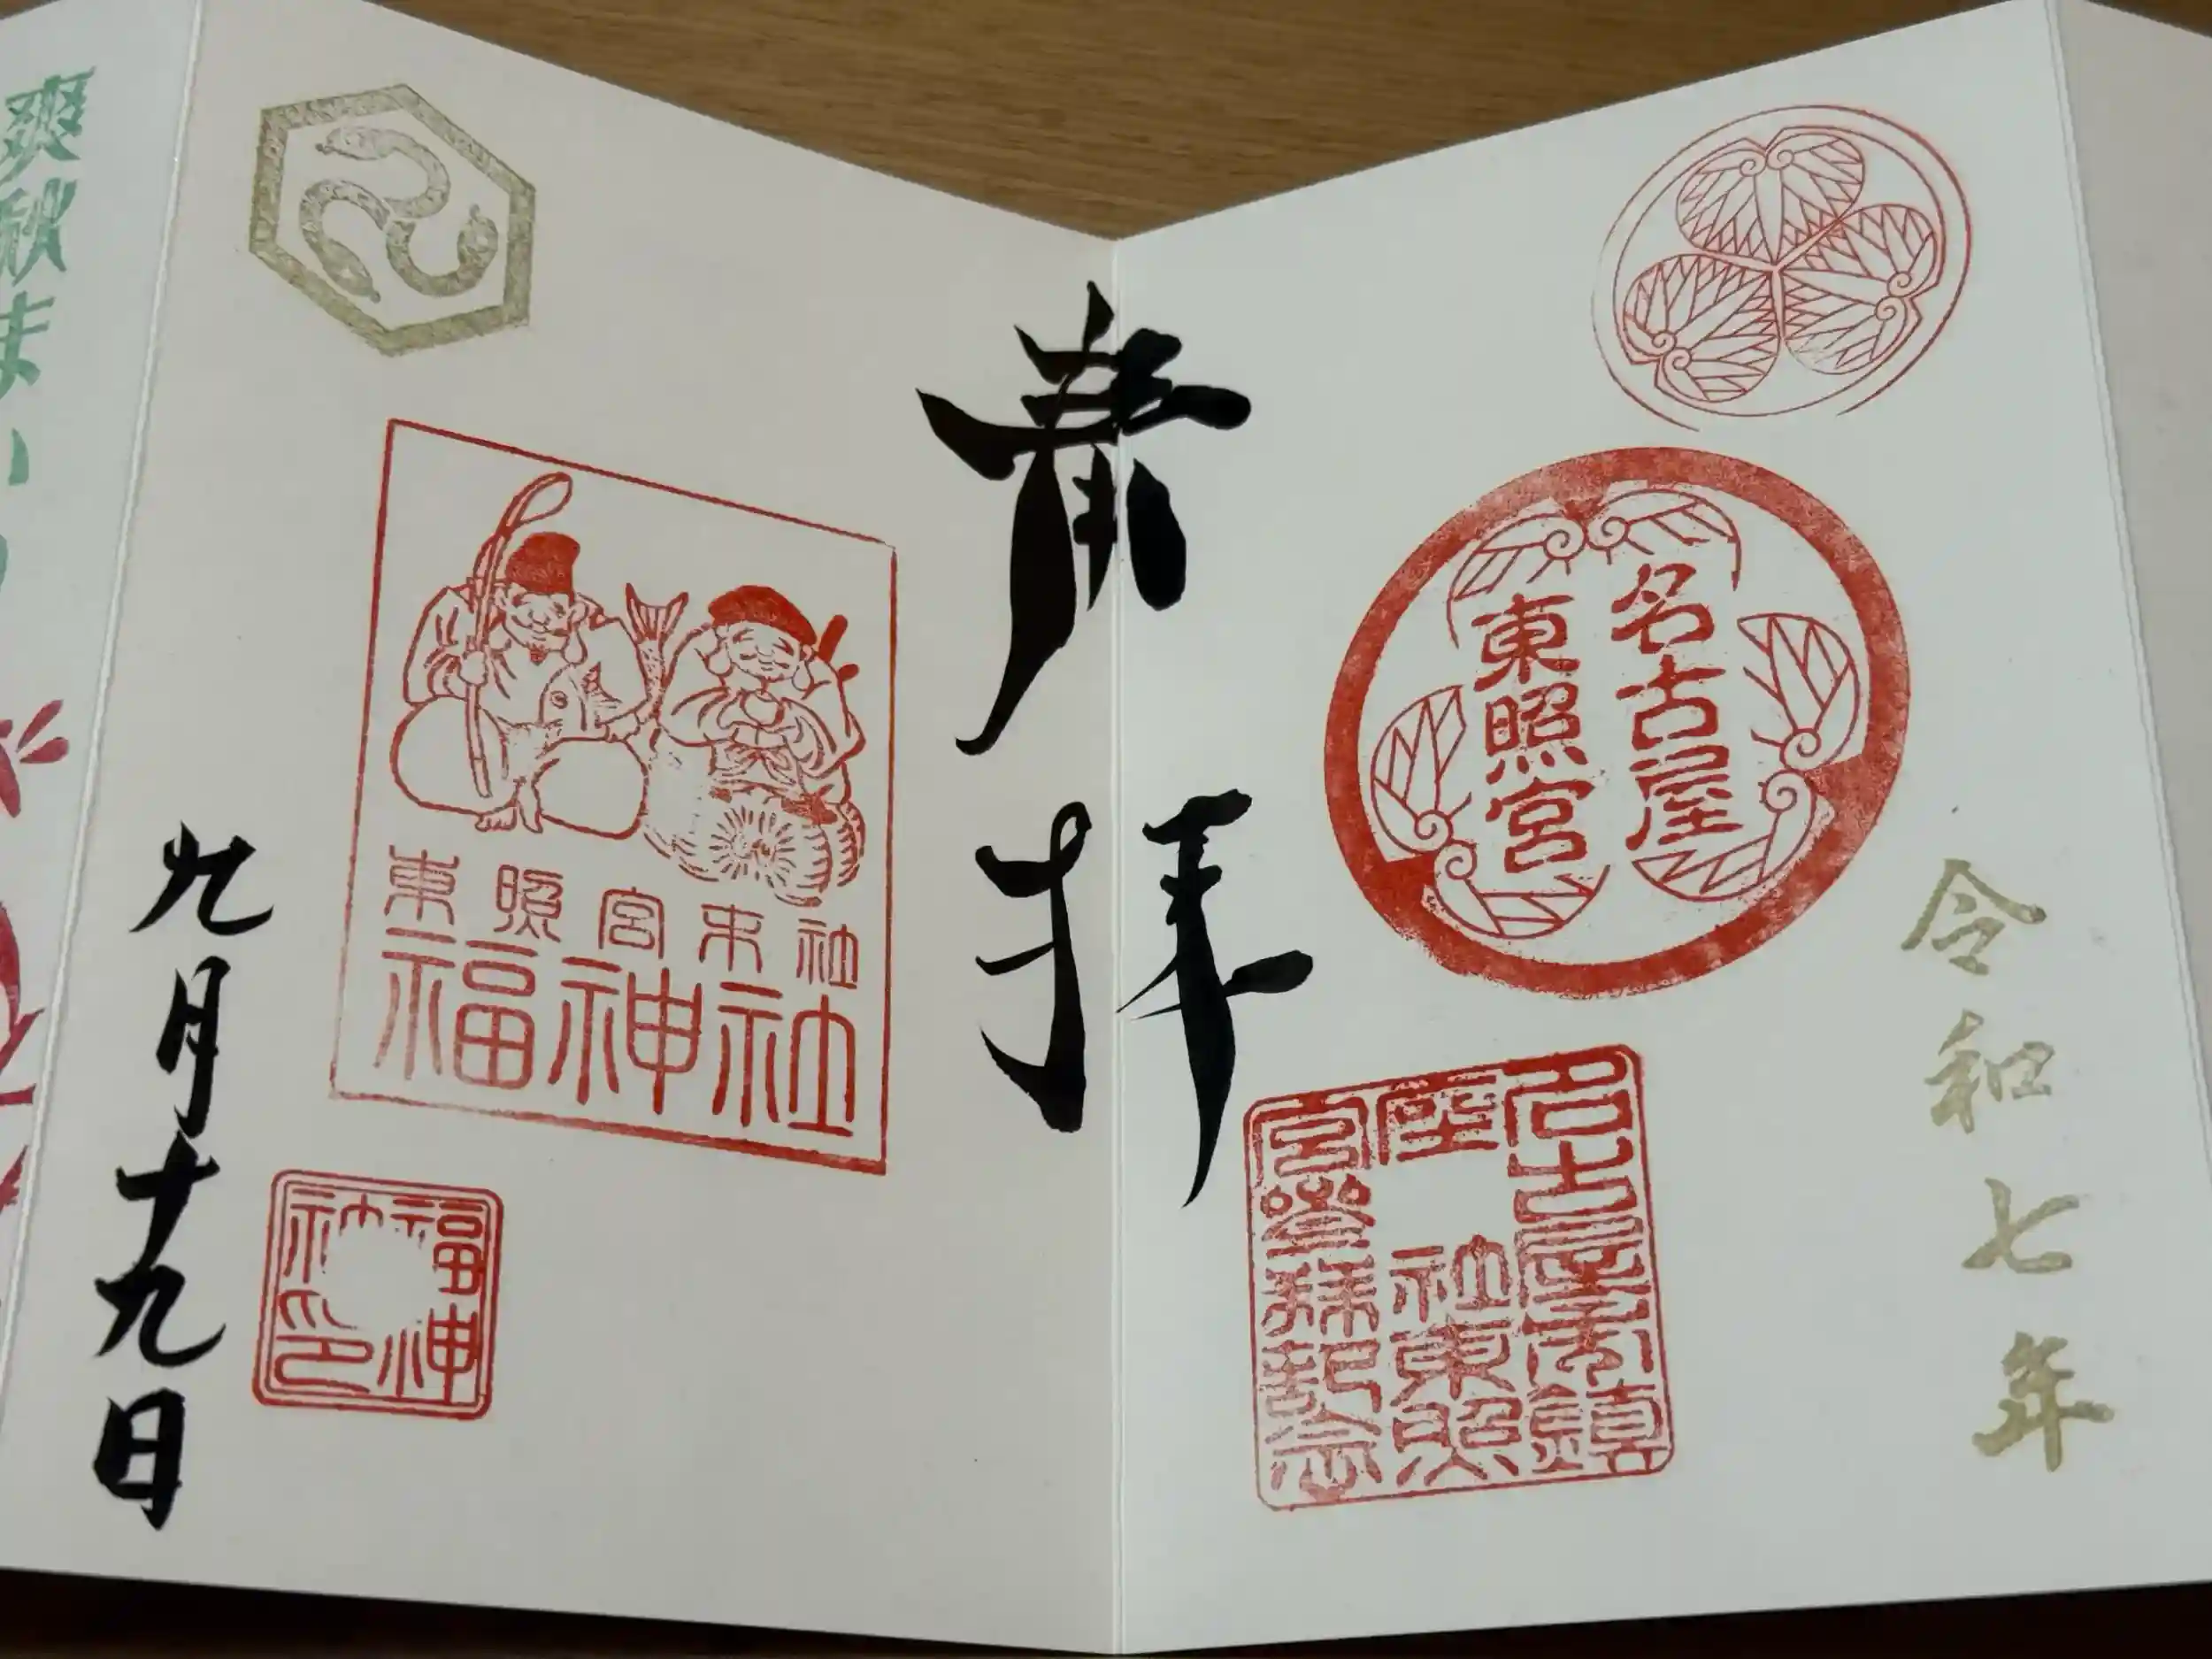 令和七年
名古屋
東照宮
名古屋市鎮
座 社東照
宮參拝記念
肅拝
東照宮末社
福神社
福神
社印
九月十九日
爽秋まい